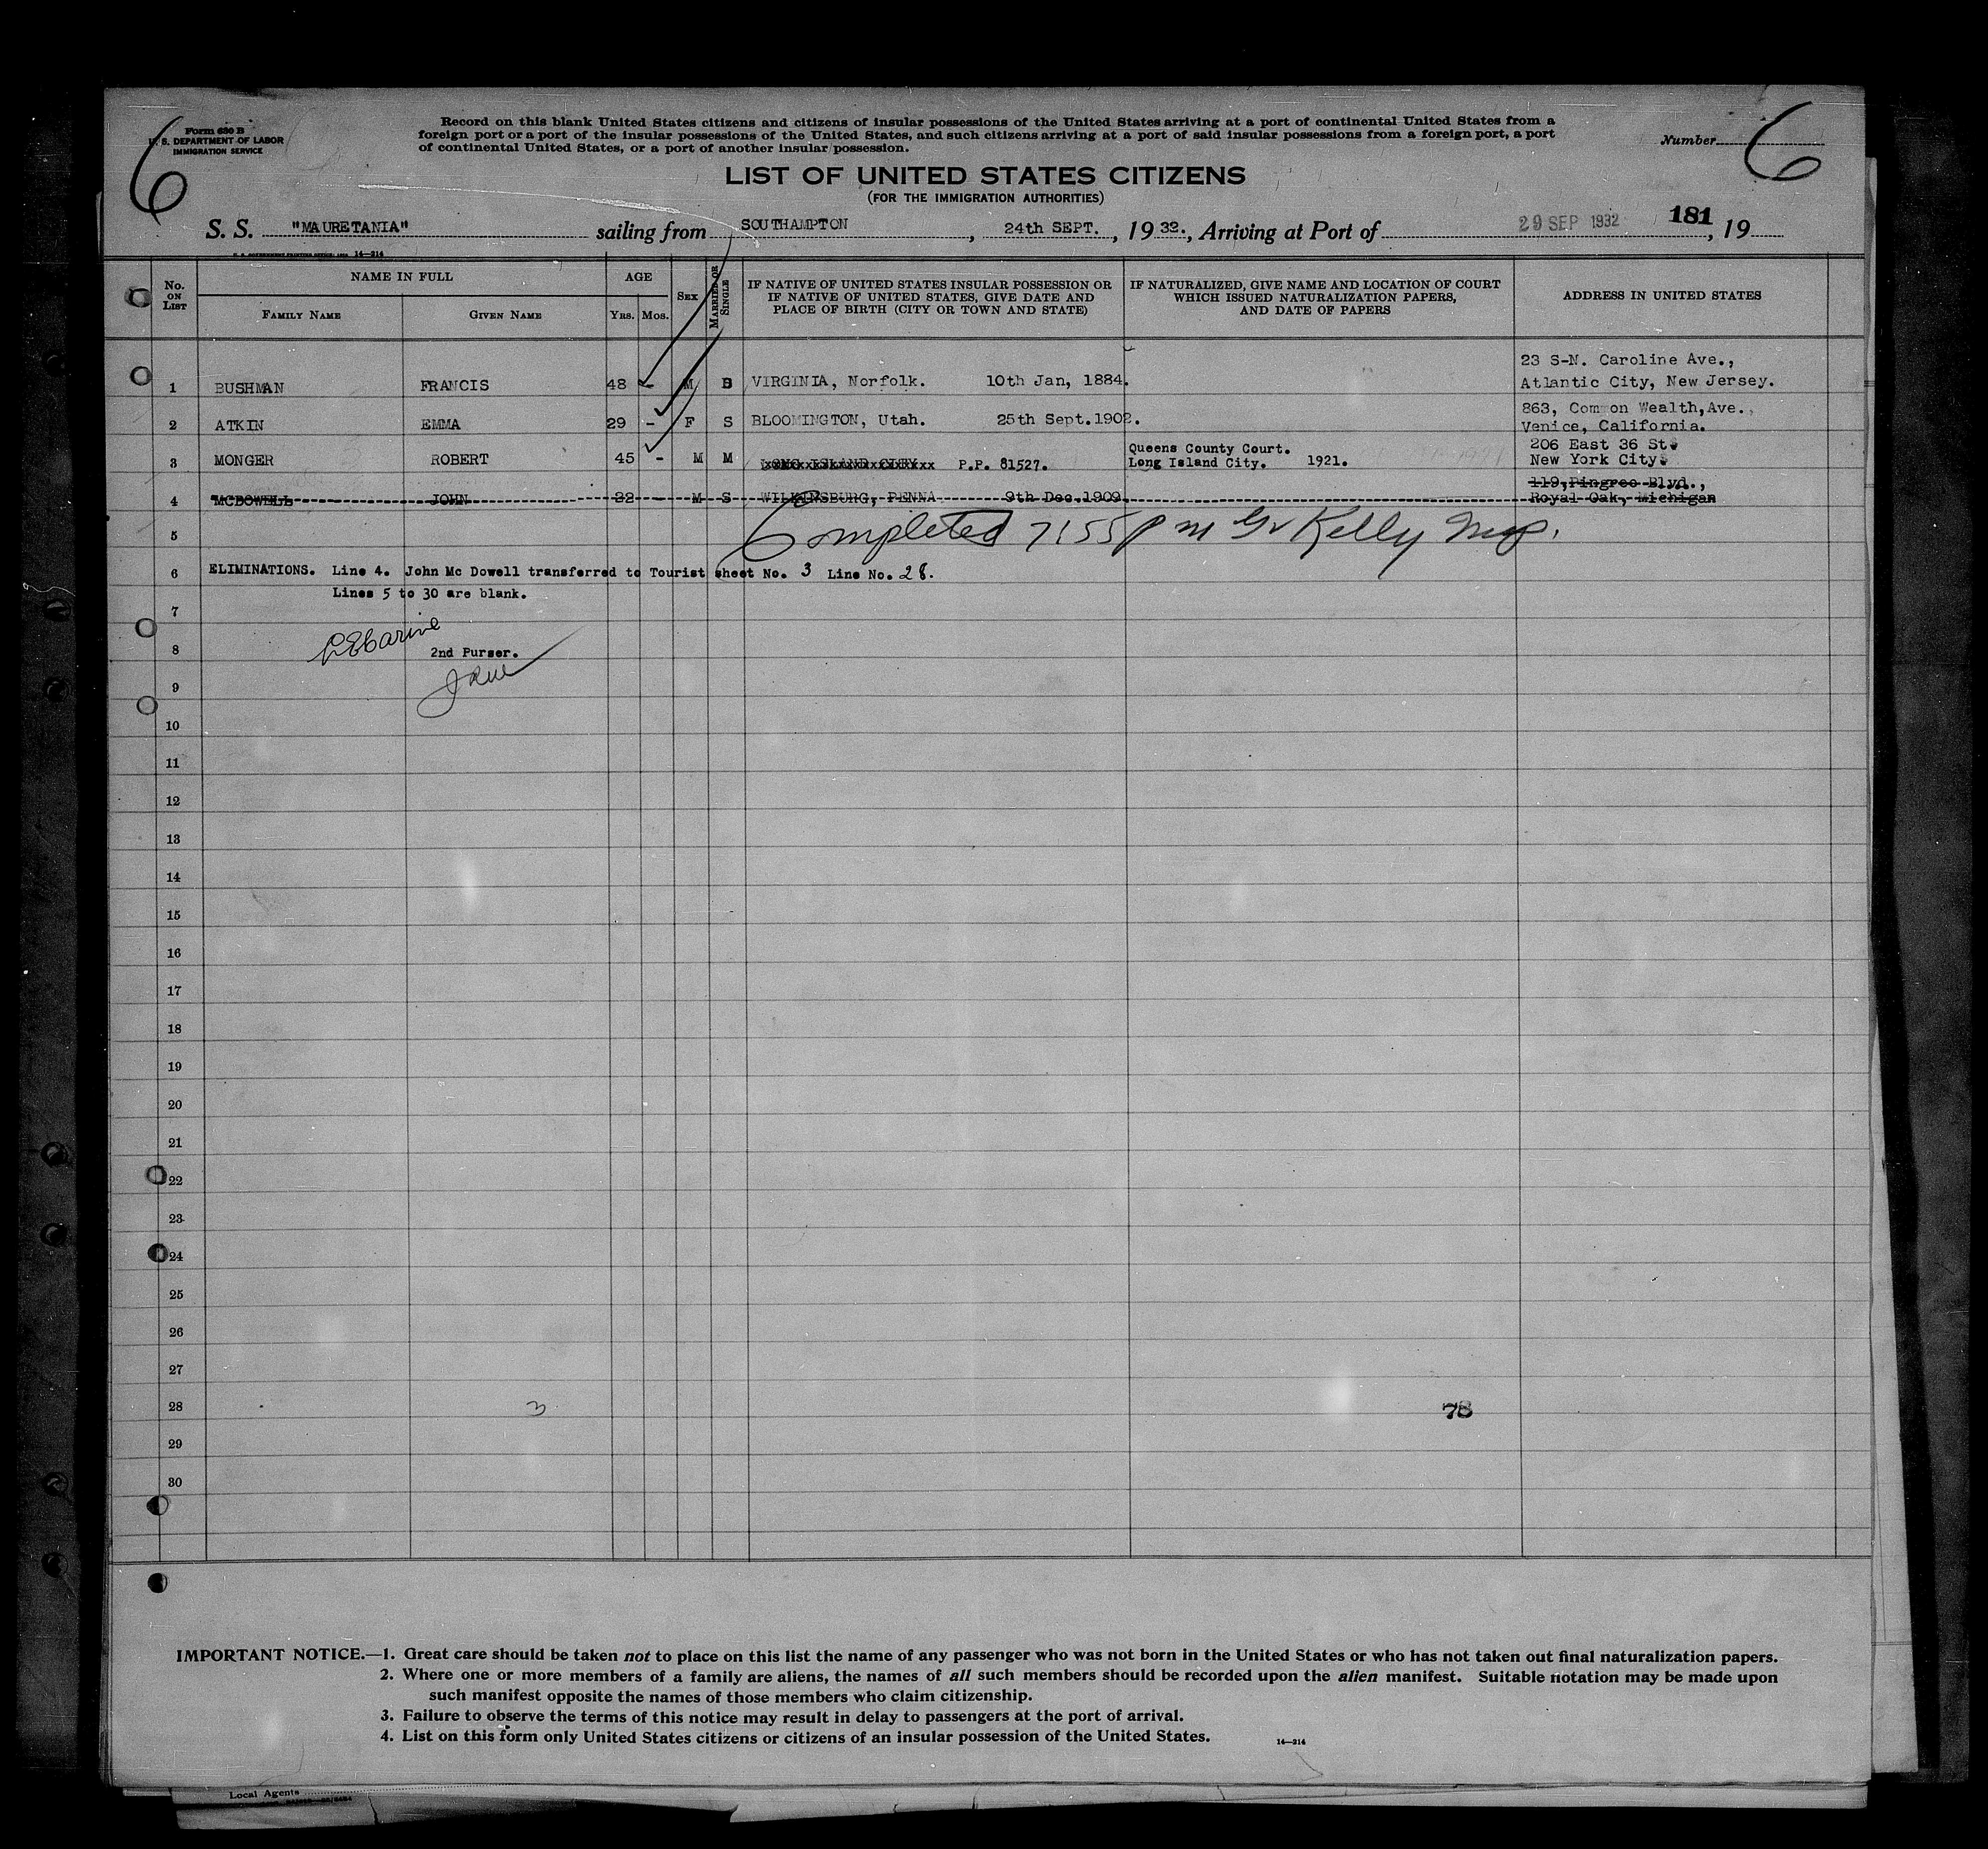 Form 630 B
U. S. DEPARTMENT OF LABOR
IMMIGRATION SERVICE
Record on this blank United States citizens and citizens of insular possessions of the United States arriving at a port of continental United States from a
foreign port or a port of the insular possessions of the United States, and such citizens arriving at a port of said insular possessions from a foreign port, a port
of continental United States, or a port of another insular possession.
Number
6
6
LIST OF UNITED STATES CITIZENS
(FOR THE IMMIGRATION AUTHORITIES)
S. S. "MAURETANIA" sailing from SOUTHAMPTON, 24th SEPT., 1932., Arriving at Port of 29 SEP 1932 181, 19
14—214
No. ON LIST
NAME IN FULL
FAMILY NAME
GIVEN NAME
AGE
YRS. MOS.
SEX
MARRIED OR SINGLE
IF NATIVE OF UNITED STATES INSULAR POSSESSION OR
IF NATIVE OF UNITED STATES, GIVE DATE AND
PLACE OF BIRTH (CITY OR TOWN AND STATE)
IF NATURALIZED, GIVE NAME AND LOCATION OF COURT
WHICH ISSUED NATURALIZATION PAPERS,
AND DATE OF PAPERS
ADDRESS IN UNITED STATES
23 S-N. Caroline Ave.,
1 BUSHMAN FRANCIS 48 - M VIRGINIA, Norfolk. 10th Jan, 1884. Atlantic City, New Jersey.
863, Common Wealth,Ave.,
2 ATKIN EMMA 29 - F S BLOOMINGTON, Utah. 25th Sept.1902. Venice, California.
Queens County Court. 206 East 36 St.
3 MONGER ROBERT 45 - M M LONG ISLAND CITY P.P. 81527. Long Island City. 1921. New York City.
119,Pingree Blvd.,
4 MCDOWELL JOHN 22 - M S WILKINSBURG, PENNA 9th Dec.1909. Royal Oak, Michigan
5 Completed 7:55 pm Kelly Insp.
6 ELIMINATIONS. Line 4. John Mc Dowell transferred to Tourist sheet No. 3 Line No. 28.
Lines 5 to 30 are blank.
7
8 2nd Purser.
9
10
11
12
13
14
15
16
17
18
19
20
21
22
23
24
25
26
27
28 3 78
29
30
IMPORTANT NOTICE.—1. Great care should be taken not to place on this list the name of any passenger who was not born in the United States or who has not taken out final naturalization papers.
2. Where one or more members of a family are aliens, the names of all such members should be recorded upon the alien manifest. Suitable notation may be made upon
such manifest opposite the names of those members who claim citizenship.
3. Failure to observe the terms of this notice may result in delay to passengers at the port of arrival.
4. List on this form only United States citizens or citizens of an insular possession of the United States.
14—214
Local Agents